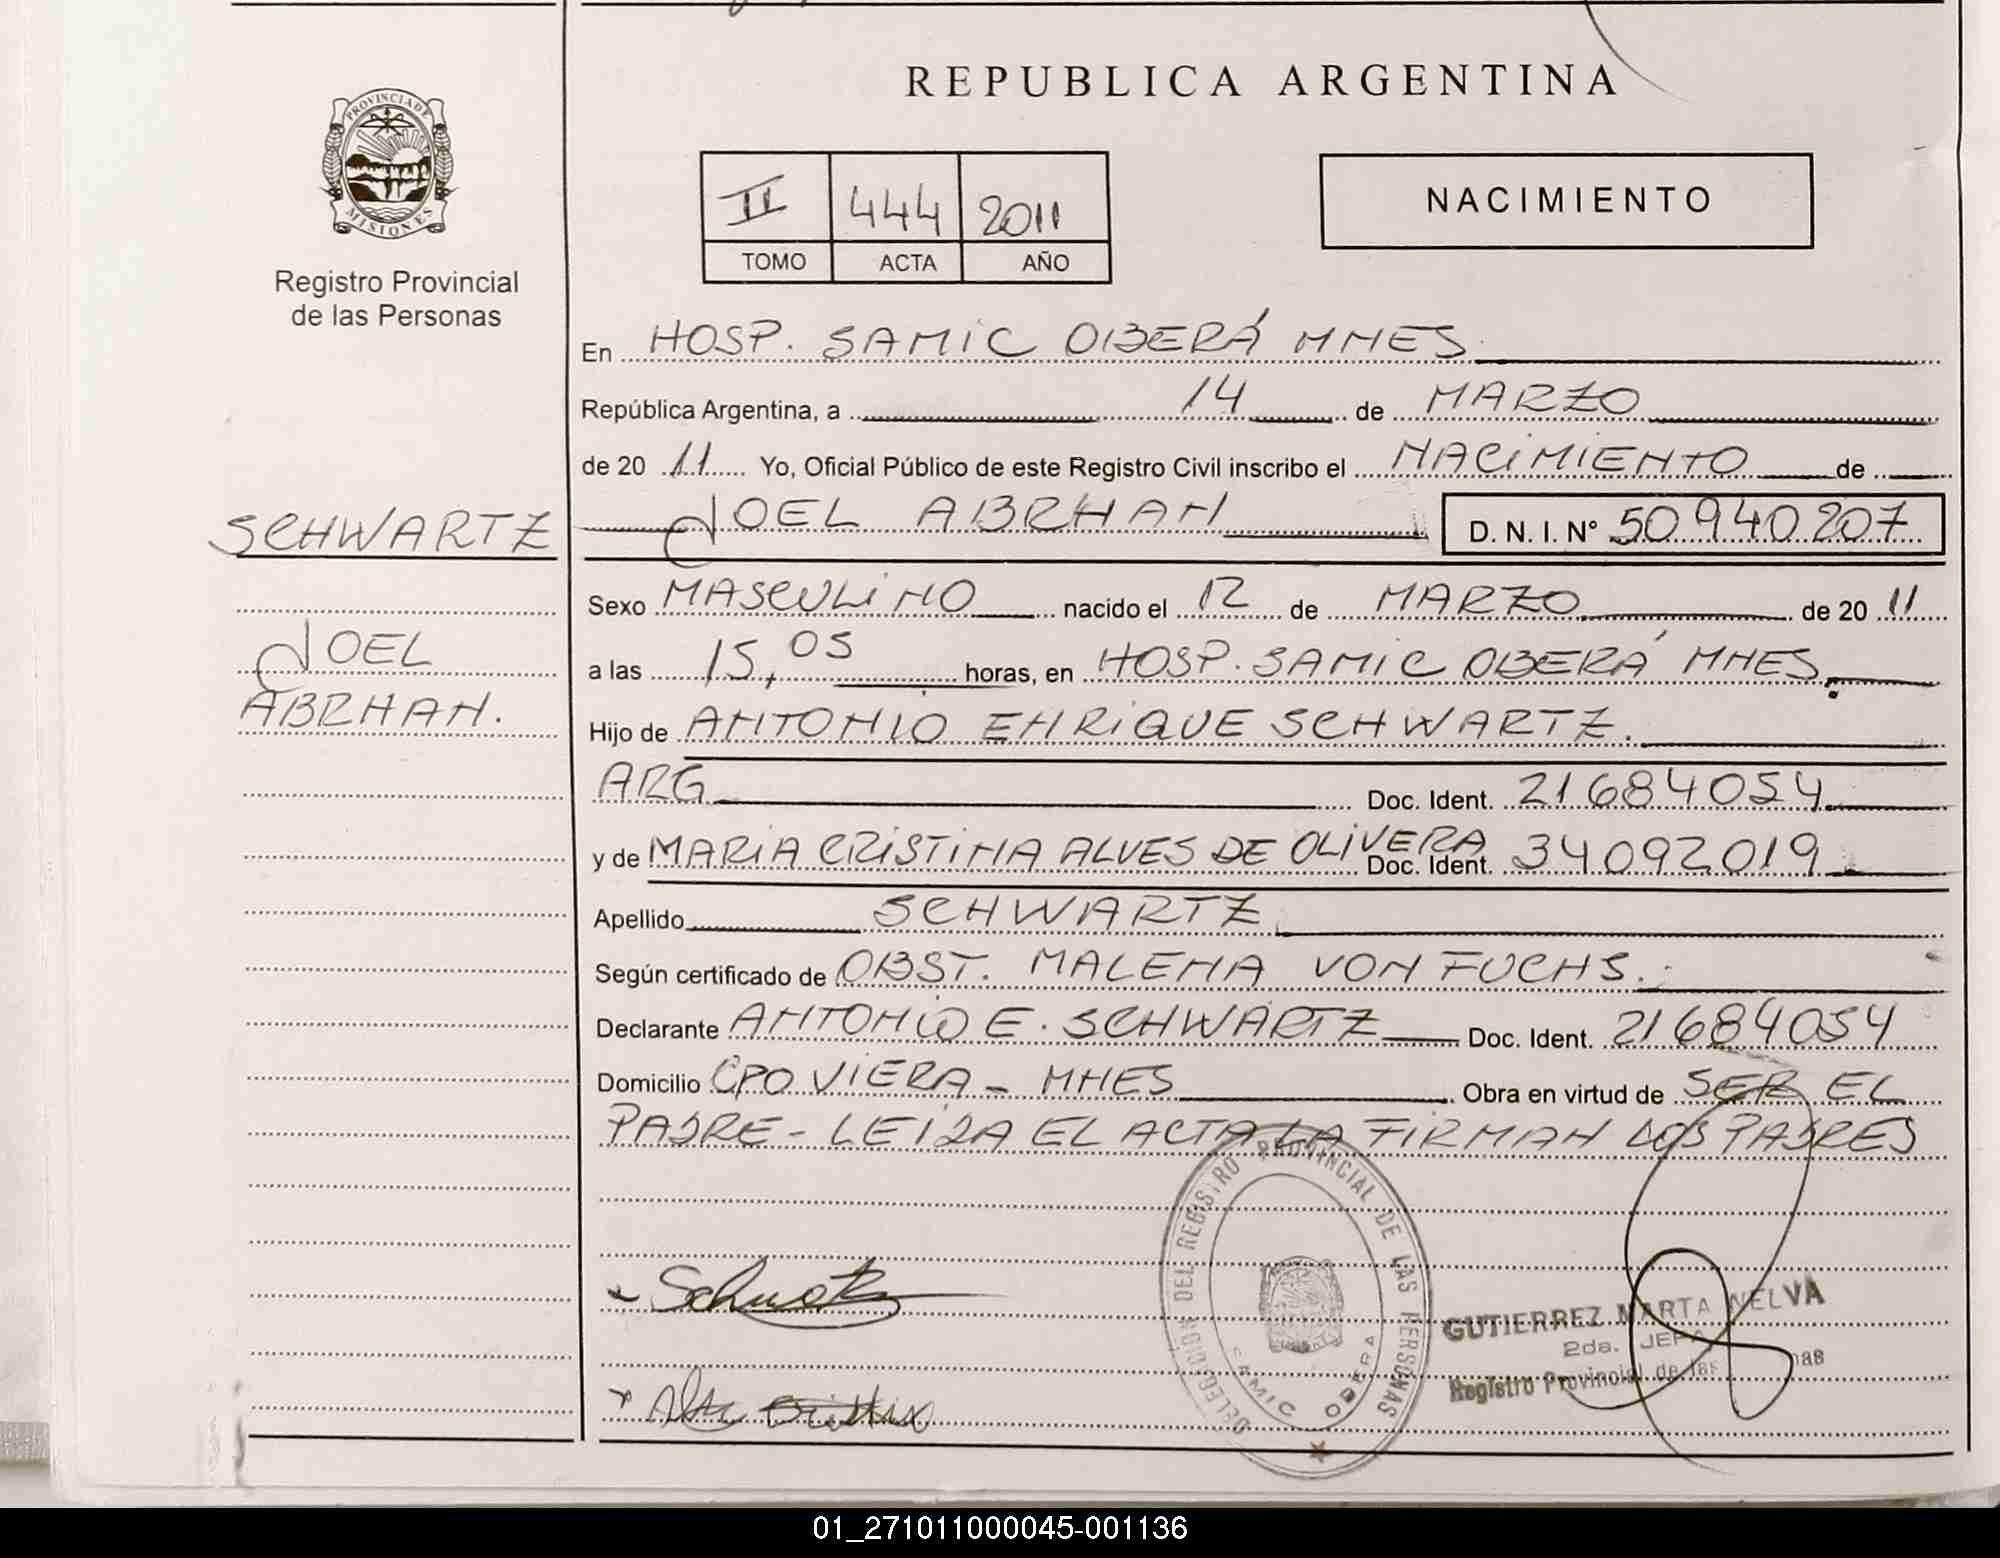 REPUBLICA ARGENTINA
PROVINCIA DE
MISIONES
Registro Provincial
de las Personas
II 444 2011
TOMO ACTA AÑO
NACIMIENTO
En HOSP. SAMIC OBERÁ MNES
República Argentina, a 14 de MARZO
de 20 11 Yo, Oficial Público de este Registro Civil inscribo el NACIMIENTO de
JOEL ABRHAN D. N. I. Nº 50940207
SCHWARTZ
JOEL
ABRHAN.
Sexo MASCULINO nacido el 12 de MARZO de 20 11
a las 15,05 horas, en HOSP. SAMIC OBERÁ MNES.
Hijo de ANTONIO ENRIQUE SCHWARTZ.
ARG Doc. Ident. 21684054
y de MARIA CRISTINA ALVES DE OLIVERA Doc. Ident. 34092019
Apellido SCHWARTZ
Según certificado de OBST. MALENA VON FUCHS.
Declarante ANTONIO E. SCHWARTZ Doc. Ident. 21684054
Domicilio CPO VIERA - MNES Obra en virtud de SER EL
PADRE - LEIDA EL ACTA LA FIRMAN LOS PADRES
DELEGACION DEL REGISTRO PROVINCIAL DE LAS PERSONAS
SAMIC OBERA
GUTIERREZ MARTA NELVA
2da. JEFA
Registro Provincial de las
01_271011000045-001136